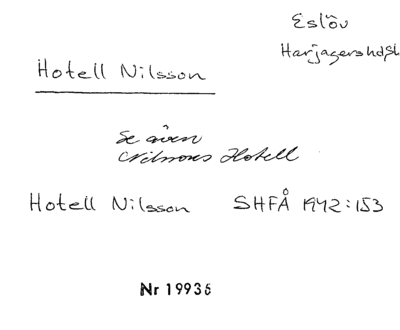 Eslöv
Harjagers hd, Sk
Hotell Nilsson
Se även
Nilssons Hotell
Hotell Nilsson SHFÅ 1942:153
Nr 19935